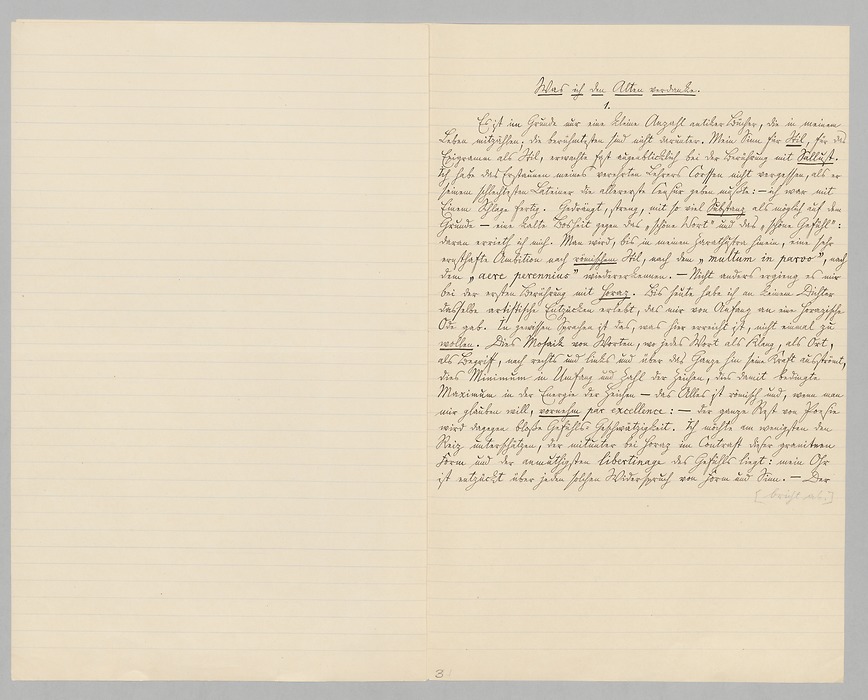 Was ich den Alten verdanke.
1.
Es ist im Grunde nur eine kleine Anzahl antiker Bücher, die in meinem
Leben mitzählen; die berühmtesten sind nicht darunter. Mein Sinn für Stil, für das
Epigramm als Stil, erwachte fast augenblicklich bei der Berührung mit Sallust.
Ich habe das Erstaunen meines verehrten Lehrers Corssen nicht vergessen, als er
seinem schlechtesten Lateiner die allererste Censur geben mußte: — ich war mit
Einem Schlage fertig. Gedrängt, streng, mit so viel Substanz als möglich auf dem
Grunde — eine kalte Bosheit gegen das „schöne Wort“ und das „schöne Gefühl“:
daran errieth ich mich. Man wird, bis in meinen Zarathustra hinein, eine sehr
ernsthafte Ambition nach römischem Stil, nach dem „multum in parvo“, nach
dem „aere perennius“ wiedererkennen. — Nicht anders ergieng es mir
bei der ersten Berührung mit Horaz. Bis heute habe ich an keinem Dichter
dasselbe artistische Entzücken erlebt, das mir von Anfang an eine Horazische
Ode gab. In gewissen Sprachen ist das, was hier erreicht ist, nicht einmal zu
wollen. Dies Mosaik von Worten, wo jedes Wort als Klang, als Ort,
als Begriff, nach rechts und links und über das Ganze hin seine Kraft ausströmt,
dies Minimum in Umfang und Zahl der Zeichen, das damit bedingte
Maximum in der Energie der Zeichen — das Alles ist römisch und, wenn man
mir glauben will, vornehm par excellence: — der ganze Rest von Poesie
wird dagegen bloße Gefühls-Geschwätzigkeit. Ich möchte am wenigsten den
Reiz unterschätzen, der mitunter bei Horaz im Contrast dieser granitnen
Form und der anmuthigsten libertinage des Gefühls liegt: mein Ohr
ist entzückt über jeden solchen Widerspruch von Form und Sinn. — Der
[bricht ab.]
3